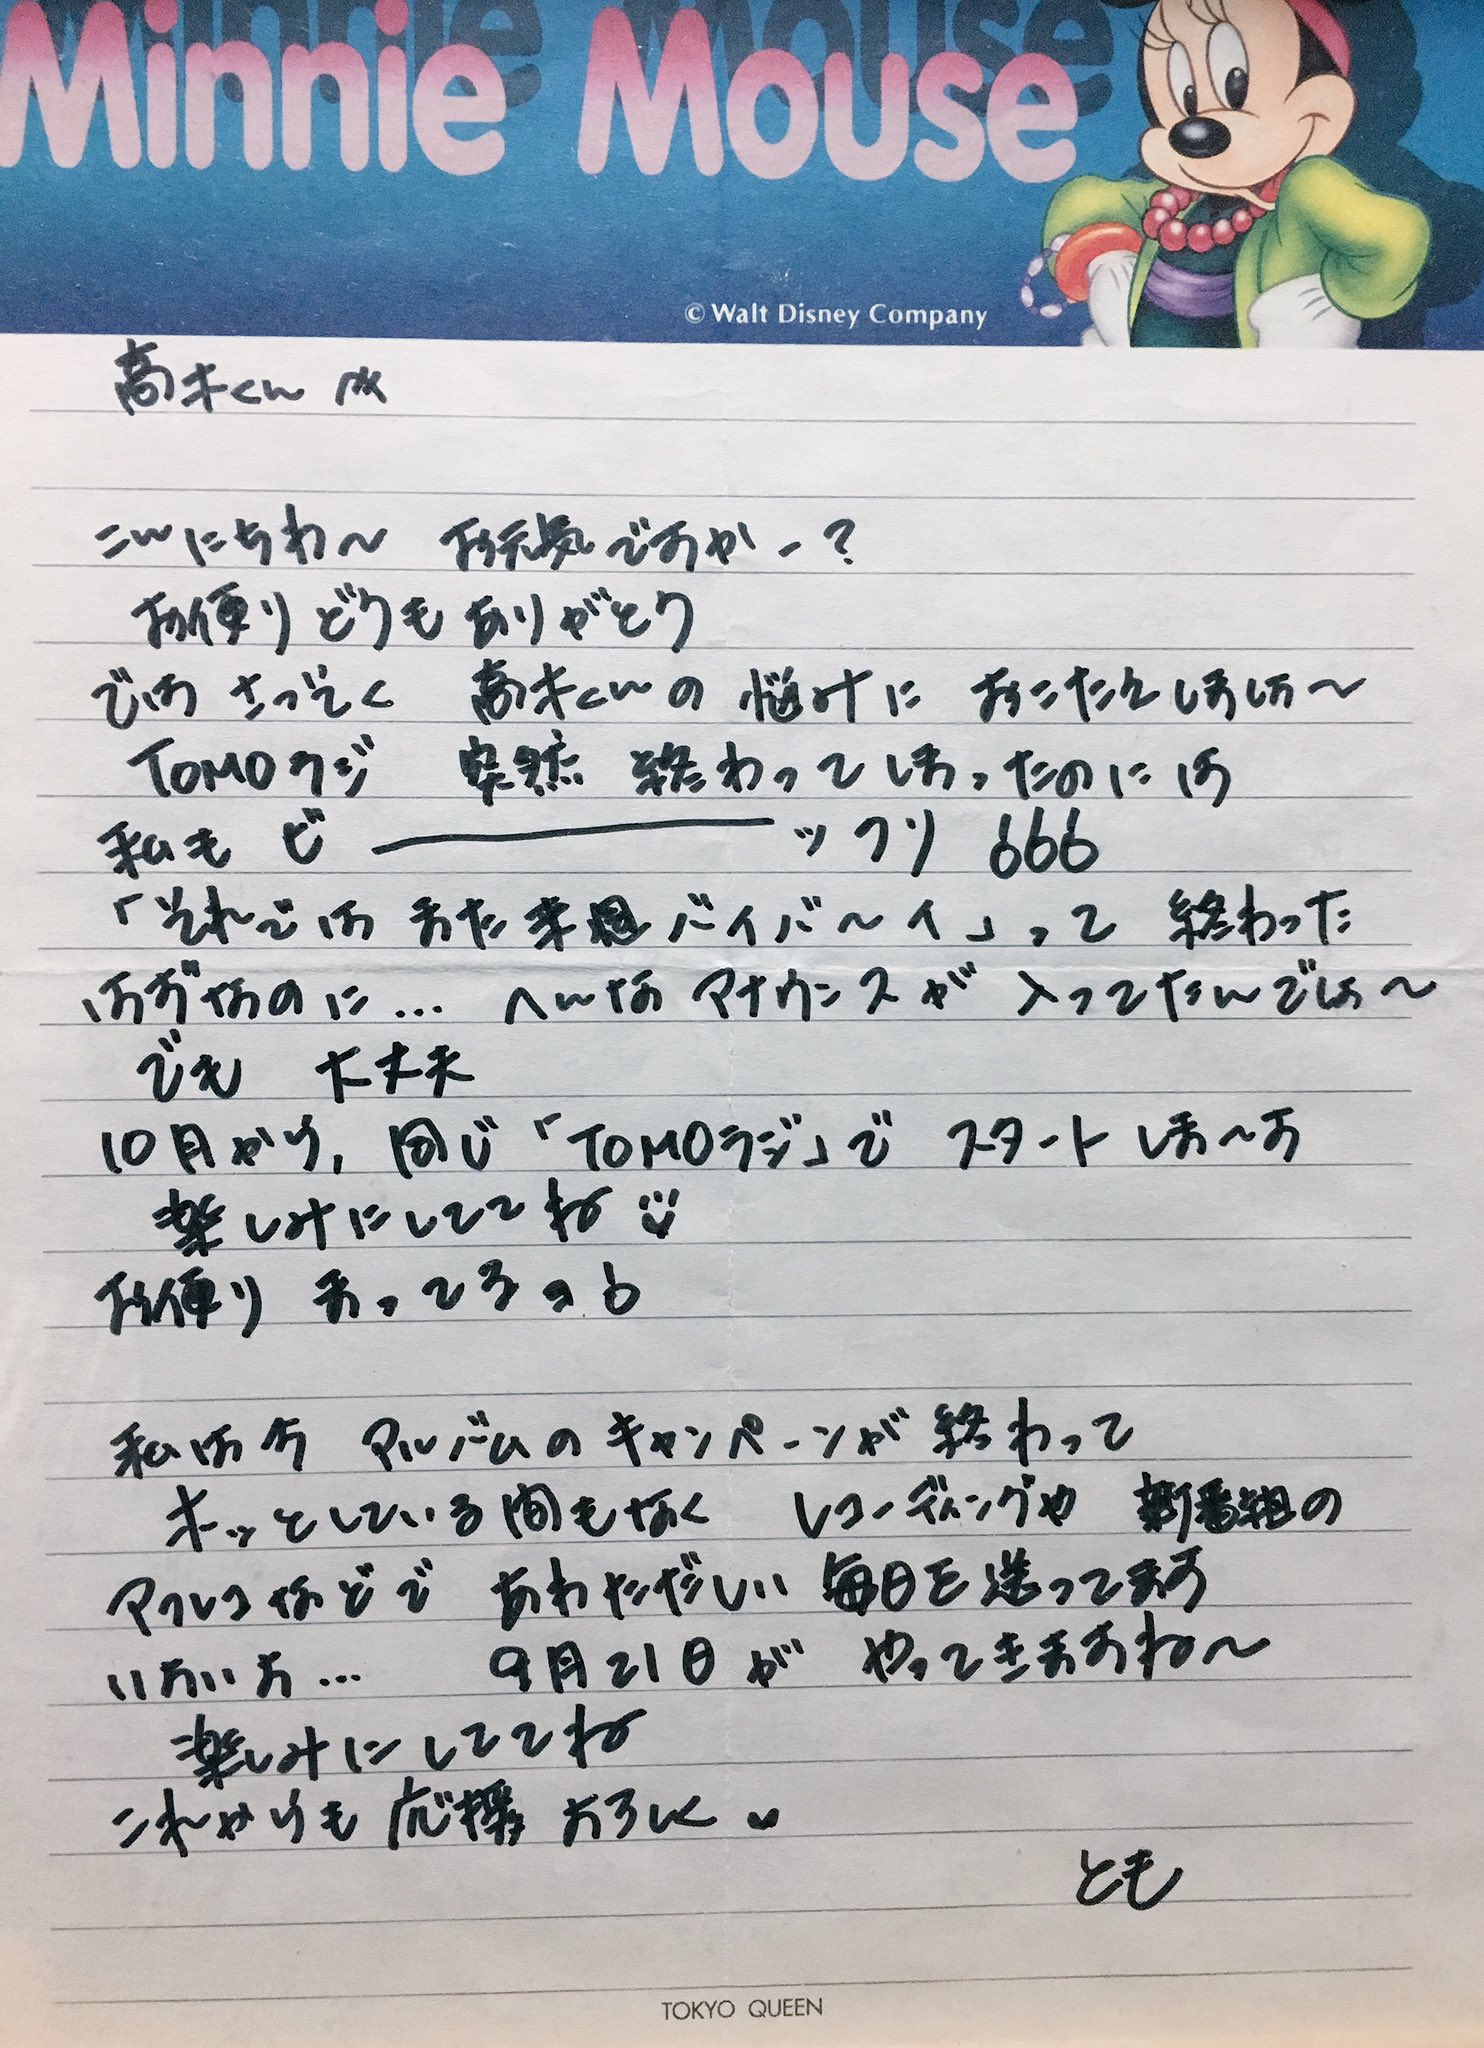 Minnie Mouse
© Walt Disney Company
高木くん江
こんにちわ〜 お元気ですかー?
お便りどうもありがとう
ではさっそく 高木くんの悩みに おこたえしましょ〜
TOMOラジ 突然 終わってしまったのには
私も ビ――――ックリ 666
「それでは また来週バイバ〜イ」って 終わった
はずなのに… へんな アナウンスが 入ってたんでは〜
でも 大丈夫
10月から, 同じ「TOMOラジ」で スタート しま〜す
楽しみにしててね
お便り まってるョ!
私は今 アルバムのキャンペーンが終わって
ホッとしている間もなく レコーディングや 新番組の
アフレコなどで あわただしい 毎日を送ってます
いよいよ… 9月21日が やってきますね〜
楽しみにしててね
これからも 応援 よろしく
とも
TOKYO QUEEN